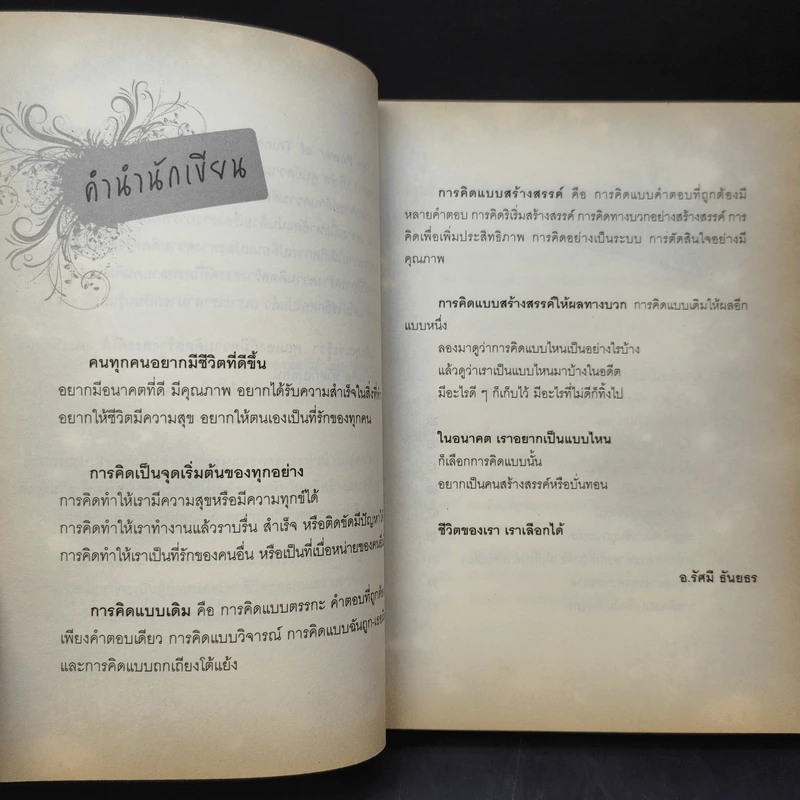 คำนำนักเขียน
คนทุกคนอยากมีชีวิตที่ดีขึ้น
อยากมีอนาคตที่ดี มีคุณภาพ อยากได้รับความสำเร็จในสิ่งที่ทำ
อยากให้ชีวิตมีความสุข อยากให้ตนเองเป็นที่รักของทุกคน
การคิดเป็นจุดเริ่มต้นของทุกอย่าง
การคิดทำให้เรามีความสุขหรือมีความทุกข์ได้
การคิดทำให้เราทำงานแล้วราบรื่น สำเร็จ หรือติดขัดมีปัญหา
การคิดทำให้เราเป็นที่รักของคนอื่น หรือเป็นที่เบื่อหน่ายของคนอื่น
การคิดแบบเดิม คือ การคิดแบบตรรกะ คำตอบที่ถูกต้อง
เพียงคำตอบเดียว การคิดแบบวิจารณ์ การคิดแบบฉันถูก-
และการคิดแบบถกเถียงโต้แย้ง
การคิดแบบสร้างสรรค์ คือ การคิดแบบคำตอบที่ถูกต้องมี
หลายคำตอบ การคิดริเริ่มสร้างสรรค์ การคิดทางบวกอย่างสร้างสรรค์ การ
คิดเพื่อเพิ่มประสิทธิภาพ การคิดอย่างเป็นระบบ การตัดสินใจอย่างมี
คุณภาพ
การคิดแบบสร้างสรรค์ให้ผลทางบวก การคิดแบบเดิมให้ผลอีก
แบบหนึ่ง
ลองมาดูว่าการคิดแบบไหนเป็นอย่างไรบ้าง
แล้วดูว่าเราเป็นแบบไหนมาบ้างในอดีต
มีอะไรดี ๆ ก็เก็บไว้ มีอะไรที่ไม่ดีก็ทิ้งไป
ในอนาคต เราอยากเป็นแบบไหน
ก็เลือกการคิดแบบนั้น
อยากเป็นคนสร้างสรรค์หรือบั่นทอน
ชีวิตของเรา เราเลือกได้
อ.รัศมี ธันยธร